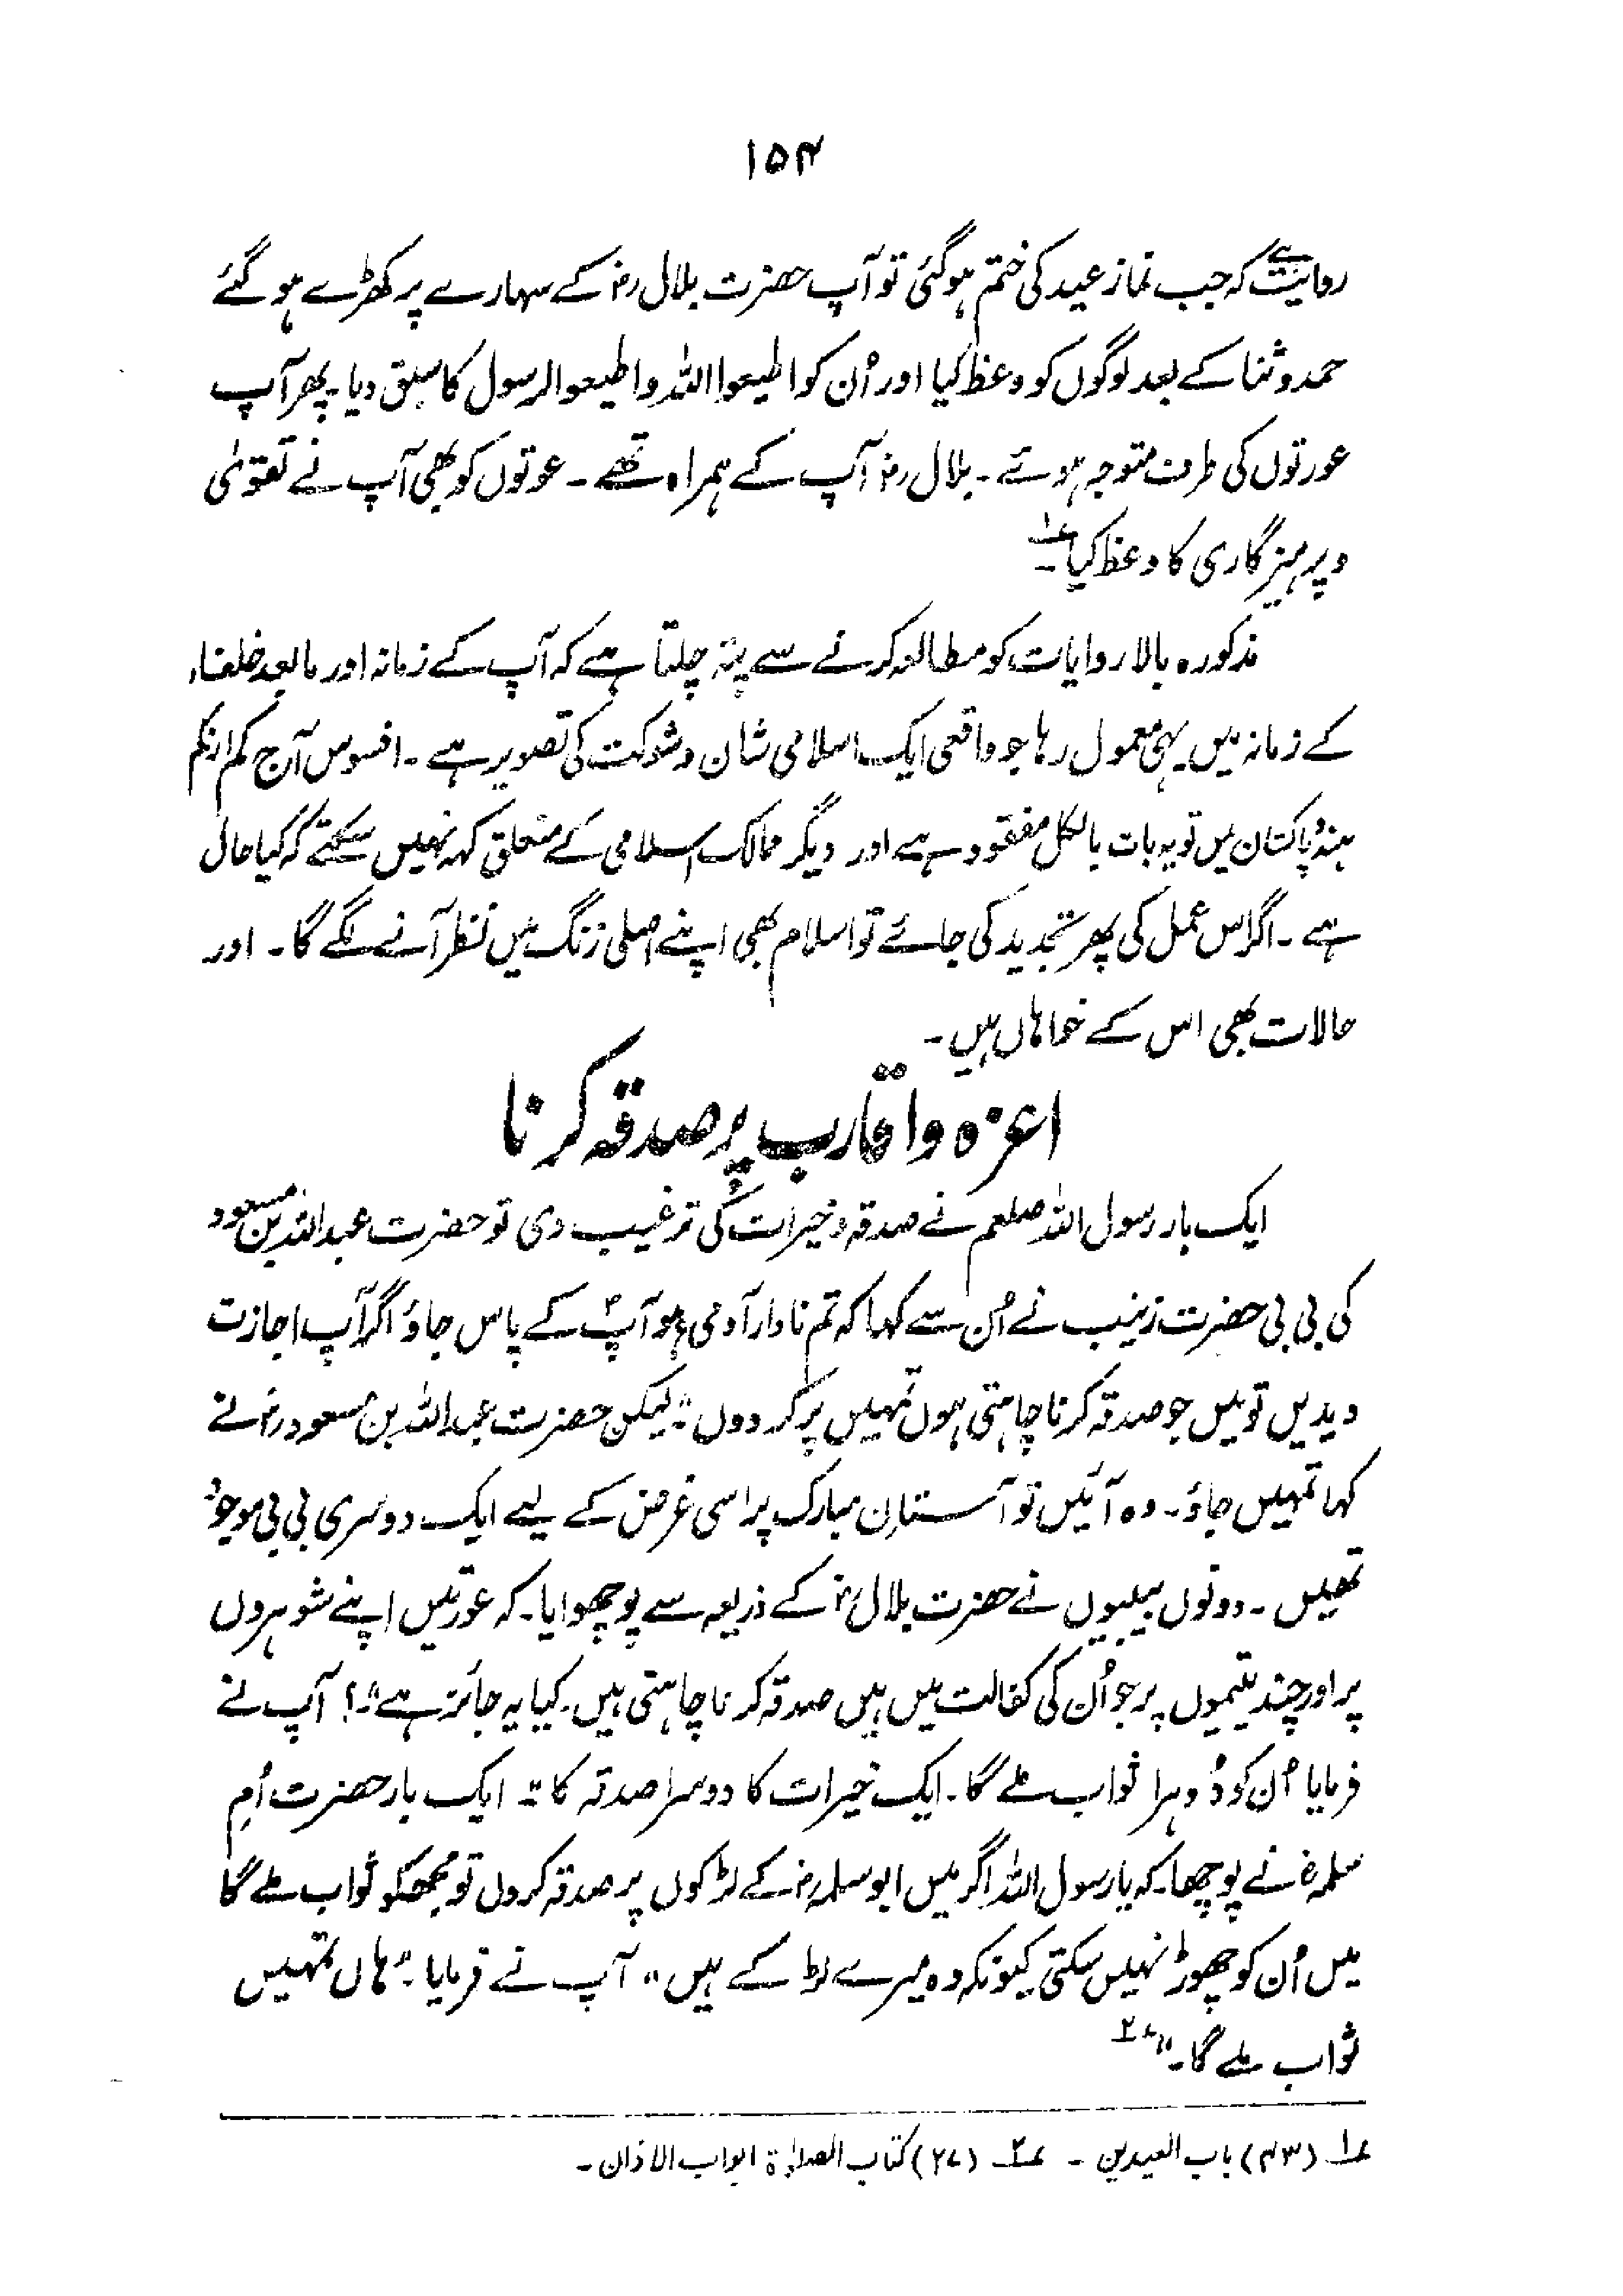 ۱۵۴
روایت ہے کہ جب نماز عید کی ختم ہوگئی تو آپ حضرت بلال رضؓ کے سہارے پر کھڑے ہو گئے
حمد و ثنا کے بعد لوگوں کو وعظ کیا اور اُن کو اطیعوا اللہ واطیعوالرسول کا سبق دیا۔ پھر آپ
عورتوں کی طرف متوجہ ہوئے۔ بلال رضؓ آپ کے ہمراہ تھے۔ عوتوں کو بھی آپ نے تقویٰ
و پرہیزگاری کا وعظ کیا۔ ؎۱
مذکورہ بالا روایات کو مطالعہ کرنے سے پتہ چلتا ہے کہ آپ کے زمانہ اور مابعد خلفاء
کے زمانہ میں یہی معمول رہا جو واقعی ایک اسلامی شان و شوکت کی تصویر ہے۔ افسوس آج کم ازکم
ہندو پاکستان میں تو یہ بات بالکل مفقود ہے اور دیگر ممالک اسلامی کے متعلق کہہ نہیں سکتے کہ کیا حال
ہے۔ اگر اس عمل کی پھر تجدید کی جائے تو اسلام بھی اپنے اصلی رنگ میں نظر آنے لگے گا۔ اور
حالات بھی اس کے خواہاں ہیں۔
اعزہ و اقارب پر صدقہ کرنا
ایک بار رسول اللہ صلعم نے صدقہ و خیرات کی ترغیب دی تو حضرت عبداللہ بن مسعود
کی بی بی حضرت زینب نے اُن سے کہا کہ تم نادار آدمی ہو آپؐ کے پاس جاؤ اگر آپ اجازت
دیدیں تو میں جو صدقہ کرنا چاہتی ہوں تمہیں پر کر دوں۔" لیکن حضرت عبداللہ بن مسعود رضؓ نے
کہا تمہیں جاؤ۔ وہ آئیں تو آستانِ مبارک پر اسی غرض کے لیے ایک دوسری بی بی موجود
تھیں۔ دونوں بیبیوں نے حضرت بلال رضؓ کے ذریعہ سے پوچھوایا۔ کہ عورتیں اپنے شوہروں
پر اور چند یتیموں پر جو اُن کی کفالت میں ہیں صدقہ کرنا چاہتی ہیں۔ کیا یہ جائز ہے"؟ آپ نے
فرمایا اُن کو دُوہرا ثواب ملے گا۔ ایک خیرات کا دوسرا صدقہ کا" ایک بار حضرت اُمِ
سلمہؓ نے پوچھا۔ کہ یا رسول اللہ اگر میں ابو سلمہ رضؓ کے لڑکوں پر صدقہ کروں تو مجھکو ثواب ملے گا
میں اُن کو چھوڑ نہیں سکتی کیونکہ وہ میرے لڑکے ہیں" آپ نے فرمایا۔ "ہاں تمہیں
ثواب ملے گا۔" ؎۲
؎۱ (۴۳) باب العیدین ۔ ؎۲ (۲۷) کتاب الصلوٰۃ ابواب الاذان۔